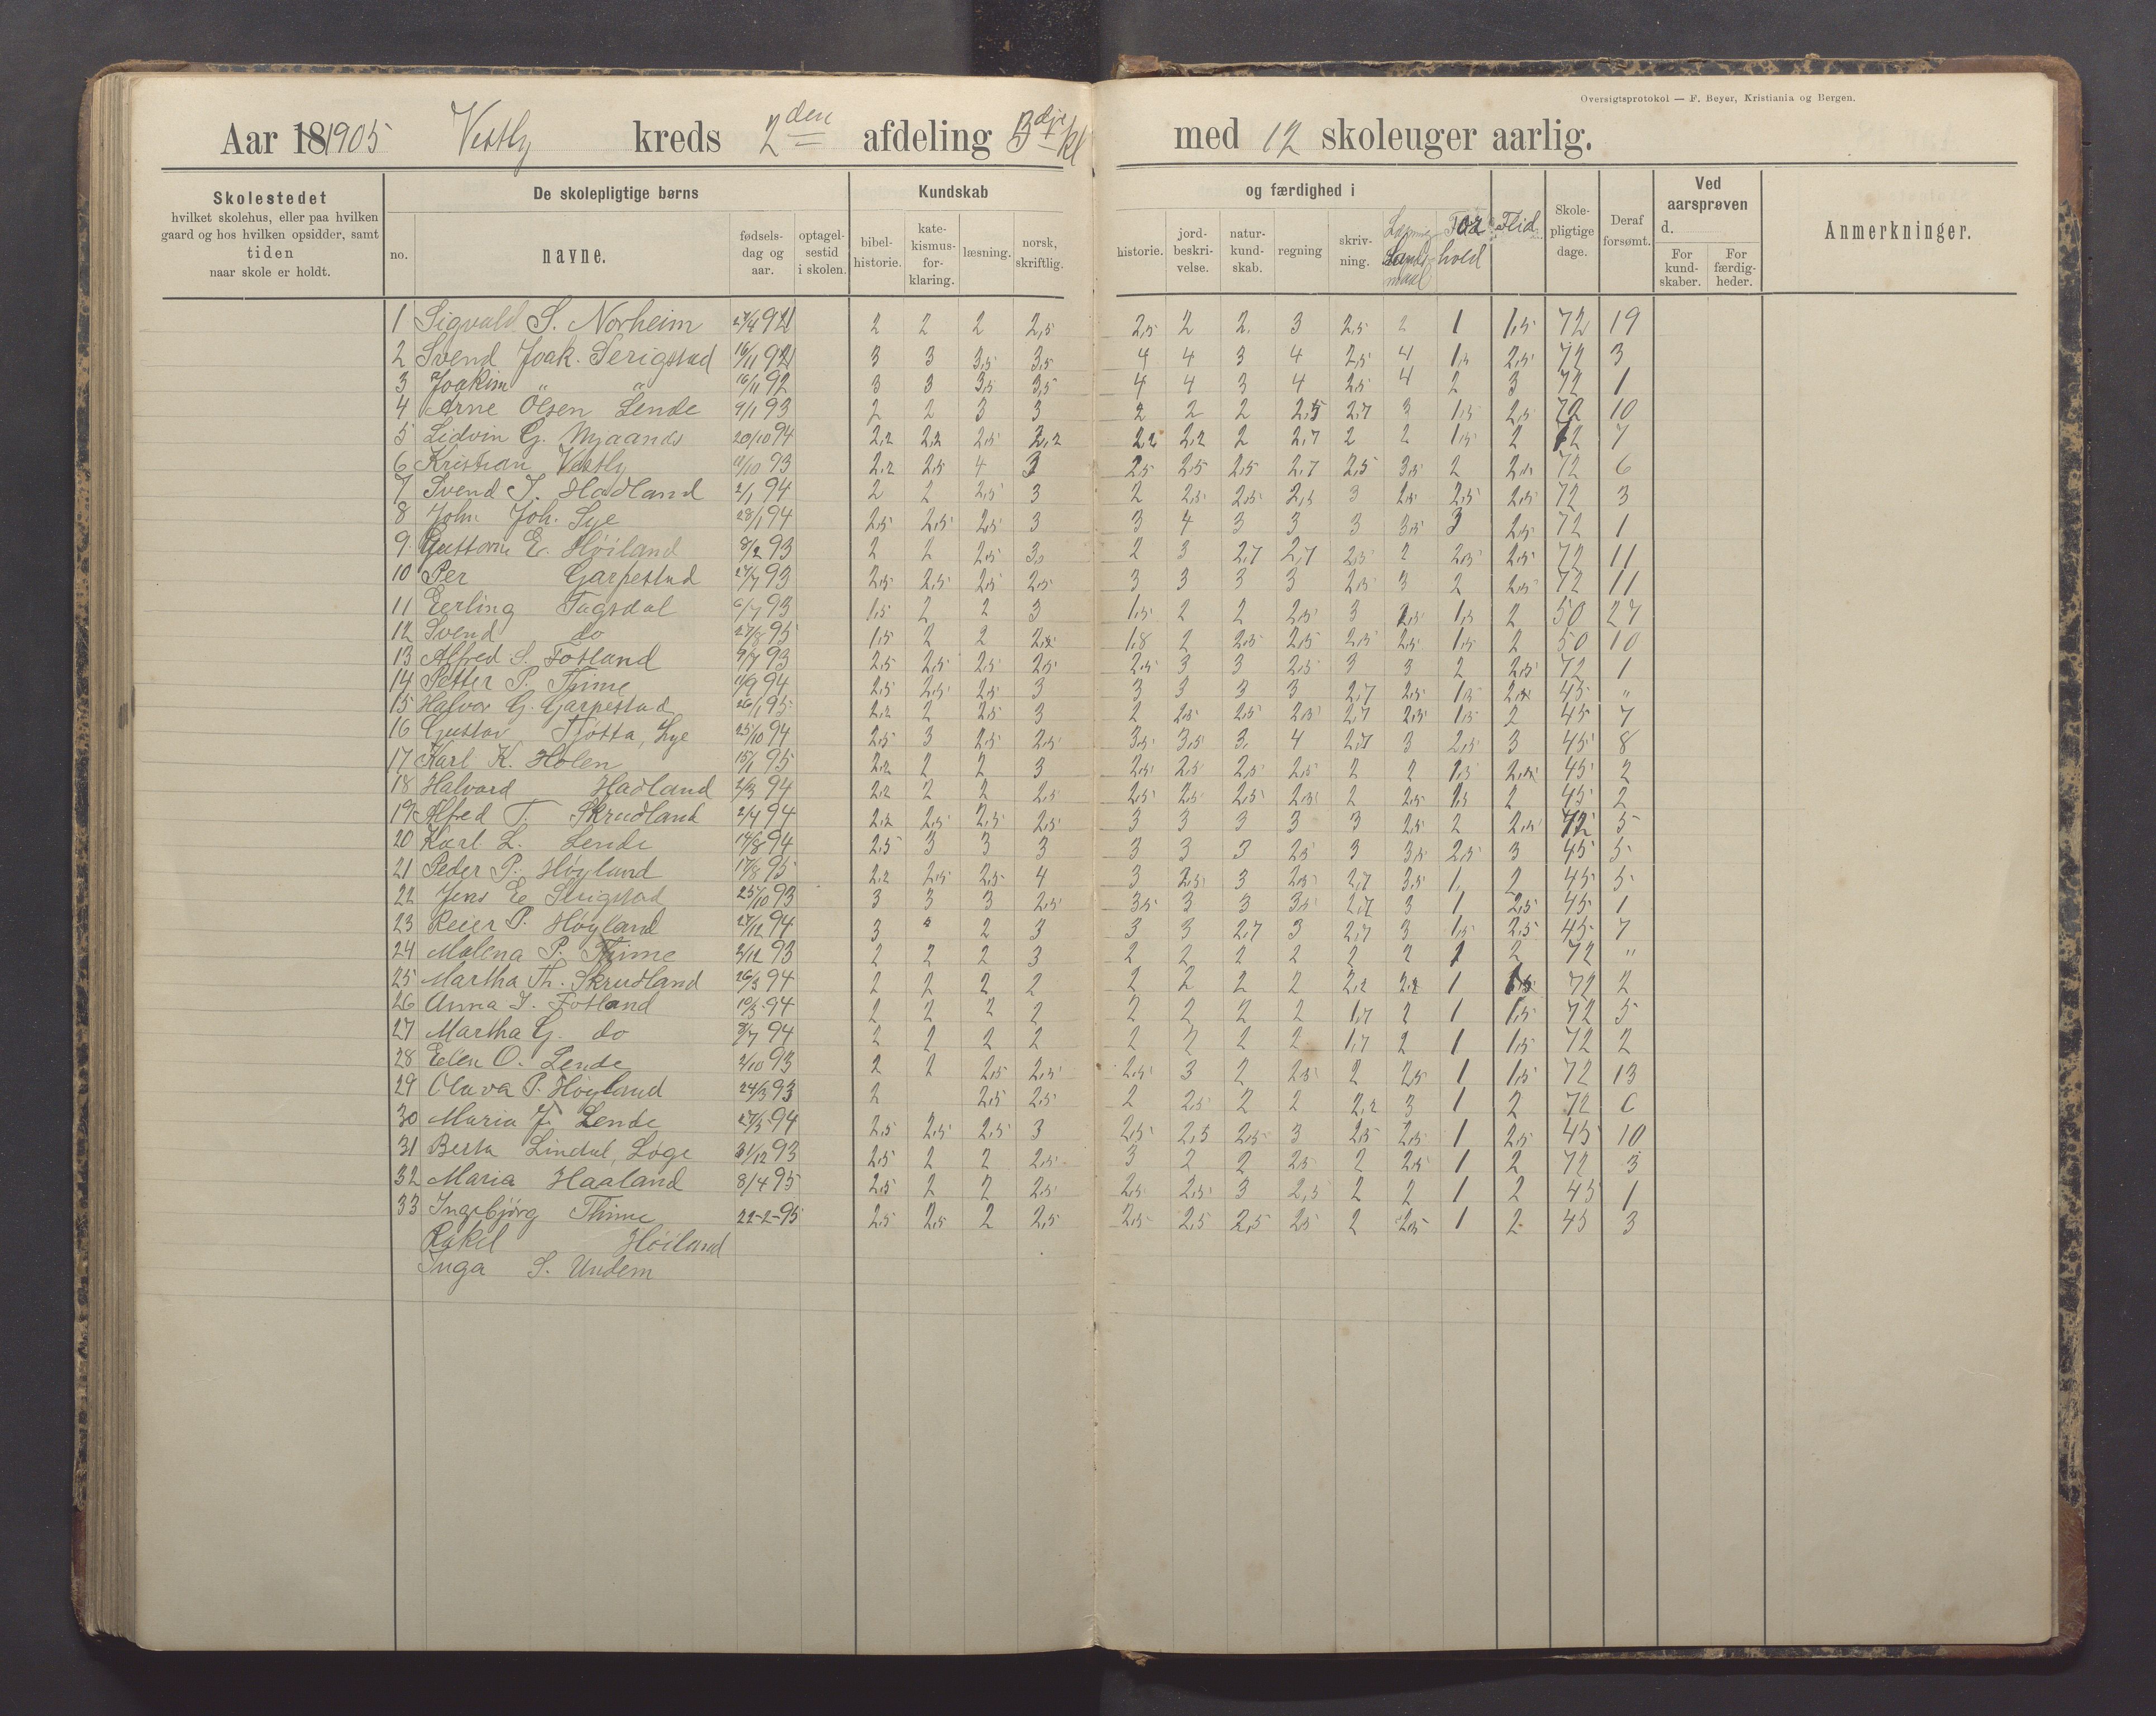 Oversigtsprotokol — F. Beyer, Kristiania og Bergen.
Aar 181905 Vestly kreds 2den afdeling 3dje kl med 12 skoleuger aarlig.
Skolestedet hvilket skolehus, eller paa hvilken gaard og hos hvilken opsidder, samt tiden naar skole er holdt.
De skolepligtige børns
no. navne. fødselsdag og aar. optagelsestid i skolen.
Kundskab og færdighed i
bibelhistorie. katekismusforklaring. læsning. norsk, skriftlig. historie. jordbeskrivelse. naturkundskab. regning skrivning. Landsmaal Forhold Flid
Skolepligtige dage. Deraf forsømt.
Ved aarsprøven d. For kundskaber. For færdigheder.
Anmerkninger.
1 Sigvald S. Norheim 27/4 92 2 2 2 2,5 2,5 2 2 3 2,5 2 1 1,5 72 19
2 Svend Joak. Serigstad 16/11 92 3 3 3,5 3,5 4 4 3 4 2,5 4 1,5 2,5 72 3
3 Joakim " " 16/11 92 3 3 3,5 3,5 4 4 3 4 2,5 4 2 3 72 1
4 Arne Olsen Lende 9/1 93 2 2 3 3 2 2 2 2,5 2,7 3 1,5 2,5 72 10
5 Lidvin G. Mjaanes 20/10 94 2,2 2,2 2,5 2,2 2,2 2,2 2 2,7 2 2 1,5 2 72 7
6 Kristian Vestly 11/10 93 2,2 2,5 4 3 2,5 2,5 2,5 2,7 2,5 3,5 2 2,5 72 6
7 Svend T. Hadland 2/1 94 2 2 2,5 3 2 2,5 2,5 2,5 3 2,5 2,5 2,5 72 3
8 John Joh. Lye 28/1 94 2,5 2,5 2,5 3 3 4 3 3 3 3,5 3 2,5 72 1
9 Guttorm E. Høiland 8/2 93 2 2 2,5 3 2 3 2,7 2,7 2,5 2 2,5 2,5 72 11
10 Per Garpestad 27/7 93 2,5 2,5 2,5 2,5 3 3 3 3 2,5 3 2 2,5 72 11
11 Eerling Tagsdal 6/7 93 1,5 2 2 3 1,5 2 2 2,5 3 2,5 1,5 2 50 27
12 Svend do 27/8 95 1,5 2 2 2,2 1,8 2 2,5 2,5 2,5 2,5 1,5 2 50 10
13 Alfred S. Fotland 9/7 93 2,5 2,5 2,5 2,5 2,5 3 3 2,5 3 3 2 2,5 72 1
14 Petter P. Thime 11/9 94 2,5 2,5 2,5 3 3 3 3 3 2,7 2,5 1,5 2,2 45 "
15 Halvor G. Garpestad 26/1 95 2,2 2 2,5 3 2 2,5 2,5 2,5 2,7 2,5 1,5 2 45 7
16 Gustav Tjøtta, Lye 25/10 94 2,5 3 2,5 2,5 3,5 3,5 3 4 2,7 3 2,5 3 45 8
17 Karl K. Holen 15/1 95 2,2 2 2 3 2,5 2,5 2,5 2,5 2 2 1,5 2,2 45 2
18 Halvard Hadland 2/3 94 2,2 2 2 2,5 2,5 2,5 2,5 2,5 2 2,5 1,5 2 45 2
19 Alfred T. Skrudland 2/4 94 2,2 2,5 2,5 2,5 3 3 3 3 3 2,5 2 2,5 72 5
20 Karl L. Lende 14/8 94 2,5 3 3 3 3 3 3 2,5 3 3,5 2,5 3 45 5
21 Peder P. Høyland 17/8 95 2,2 2,5 2,5 4 3 2,5 3 2,5 2,7 3,5 1 2 45 5
22 Jens E Serigstad 25/10 93 3 3 3 2,5 3,5 3 3 3,5 2,7 3 1 2,5 45 1
23 Reier P. Høyland 27/12 94 3 " 2 3 3 3 2,7 3 2,7 3 1,5 2,5 45 7
24 Malena P. Thime 2/12 93 2 2 2 3 2 2 2 2 2 2 1 2 72 "
25 Martha Th. Skrudland 26/3 94 2 2 2 2 2 2 2 2 2,2 2,2 1 1,5 72 2
26 Anna J. Fotland 10/3 94 2 2 2 2 2 2 2 2 1,7 2 1 1,5 72 5
27 Martha G. do 9/7 94 2 2 2 2 2 2 2 2 1,7 2 1 1,5 72 2
28 Elen O. Lende 2/10 93 2 2 2,5 2,5 2,5 3 2 2,5 2 2,5 1 1,5 72 13
29 Olava P. Høyland 24/3 93 2 2,5 2,5 2 2,5 2 2 2,2 3 1 2 72 6
30 Maria J. Lende 27/3 94 2,5 2,5 2,5 3 2,5 2,5 2,5 3 2,5 2,5 1 2,5 45 10
31 Berta Lindal, Løge 31/12 93 2,5 2 2 2,5 3 2 2 2,5 2 2,5 1 2 72 3
32 Maria Haaland 8/4 95 2,5 2 2 2,5 2,5 2,5 3 2,5 2 2 1 2 45 1
33 Ingebjørg Thime 22-2-95 2,5 2,5 2 2,5 2,5 2,5 2,5 2,5 2 2,5 1 2 45 3
Rakel Høiland
Inga S. Undem